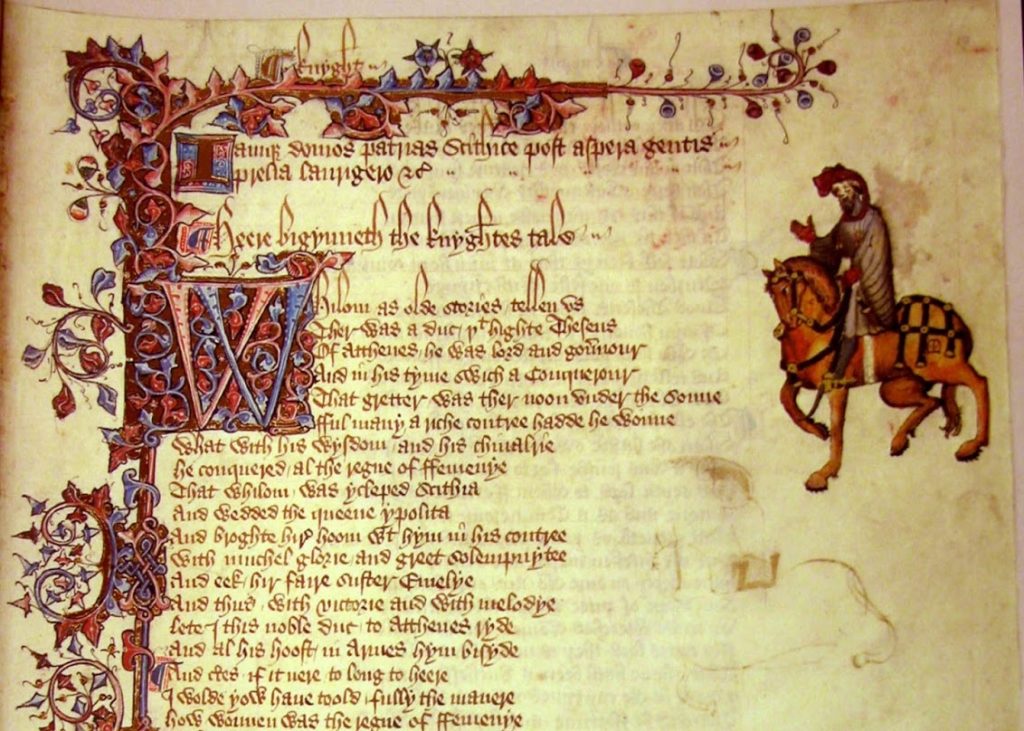 Knyght
Iamqꝫ domos patrias Scithice post aspera gentis
prelia laurigero ⁊c
Heere bigynneth the knyghtes tale
Whilom as olde stories tellen vs
Ther was a duc / þͭ highte Theseus
Of Atthenes / he was lord and gouͬnour
And in his tyme swich a Conquerour
That gretter was ther noon vnder the sonne
fful many a riche contree hadde he wonne
What with his wysdom / and his chiualrie
he conquered / al the regne of ffemenye
That whilom / was ycleped Scithia
and wedded the queene ypolita
And broghte hir hoom wͭ hym in his contree
with muchel glorie / and greet solempnytee
And eek / hir faire suster Emelye
And thus / with victorie and with melodye
lete I this noble duc / to Atthenes ryde
And al his hoost / in Armes hym bisyde
And certes / if it nere to long to heere
I wolde yow haue toold / fully the manere
how wonnen was the regne of ffemenye